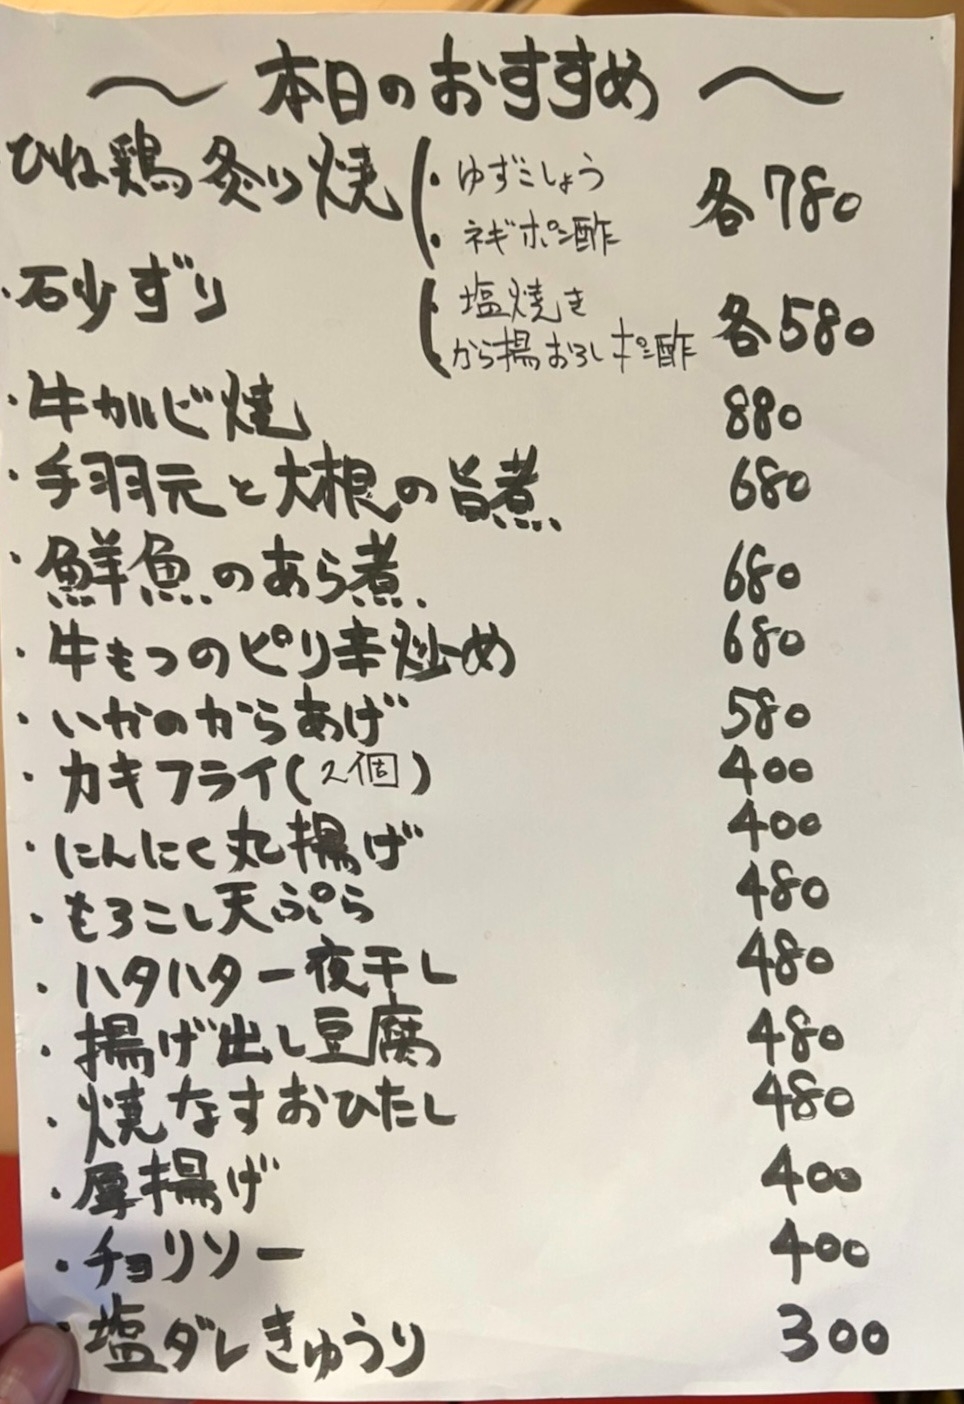 ～ 本日のおすすめ ～
ひね鶏炙り焼 ・ゆずこしょう 各780
・ネギポン酢
・砂ずり ・塩焼き 各580
・から揚おろしポン酢
・牛カルビ焼 880
・手羽元と大根の旨煮 680
・鮮魚のあら煮 680
・牛もつのピリ辛炒め 680
・いかのからあげ 580
・カキフライ(2個) 400
・にんにく丸揚げ 400
・もろこし天ぷら 480
・ハタハタ一夜干し 480
・揚げ出し豆腐 480
・焼なすおひたし 480
・厚揚げ 400
・チョリソー 400
・塩ダレきゅうり 300